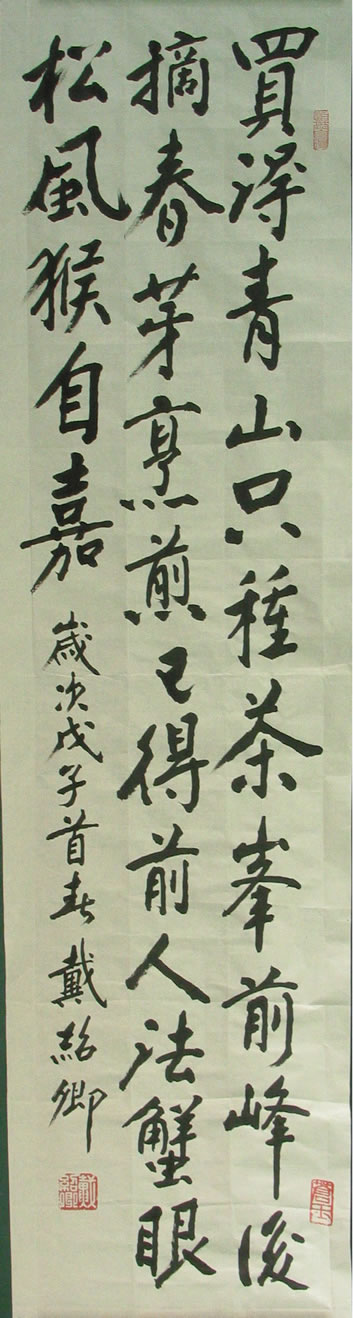 買得青山只種茶峯前峰後
摘春芽烹煎已得前人法蟹眼
松風猴自嘉
歲次戊子首春戴紹卿